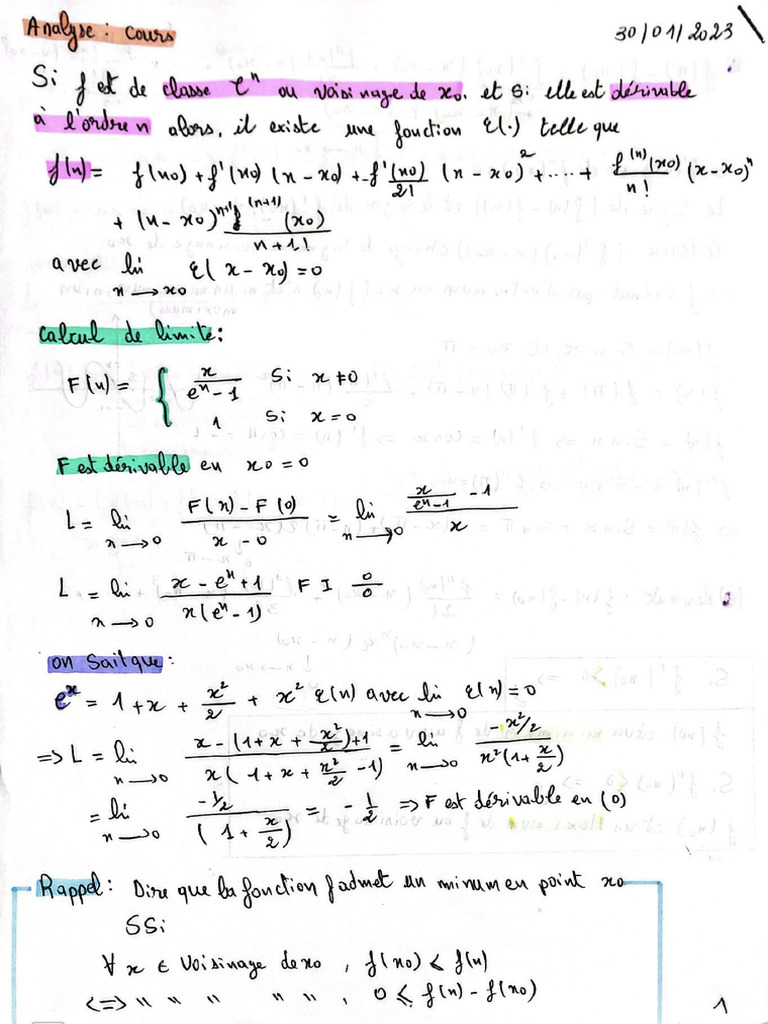 Analyse : Cours
30/01/2023
Si f est de classe Cⁿ au voisinage de x₀. et si elle est dérivable
à l'ordre n alors, il existe une fonction ε(·) telle que
f(x) = f(x₀) + f'(x₀) (x - x₀) + f'(x₀)/2! (x - x₀)² + .... + f⁽ⁿ⁾(x₀)/n! (x-x₀)ⁿ
+ (x - x₀)ⁿ⁺¹ f⁽ⁿ⁺¹⁾(x₀)/n+1!
avec lim x→x₀ ε( x - x₀) = 0
Calcul de limite :
F(x) = { x/(eˣ - 1) Si x ≠ 0
1 Si x = 0
F est dérivable en x₀ = 0
L = lim x→0 (F(x) - F(0))/(x - 0) = lim x→0 (x/(eˣ-1) - 1)/x
L = lim x→0 (x - eˣ + 1)/(x(eˣ - 1)) F I 0/0
on Sait que :
eˣ = 1 + x + x²/2 + x² ε(x) avec lim x→0 ε(x) = 0
⇒ L = lim x→0 (x - (1 + x + x²/2) + 1)/(x( 1 + x + x²/2 - 1)) = lim x→0 (-x²/2)/(x²(1 + x/2))
= lim x→0 (-1/2)/(1 + x/2) = - 1/2 ⇒ F est dérivable en (0)
Rappel : Dire que la fonction f admet un minum en point x₀
SSi
∀ x ∈ Voisinage de x₀ , f(x₀) < f(x)
<=> " " " " " , 0 ≤ f(x) - f(x₀)
1